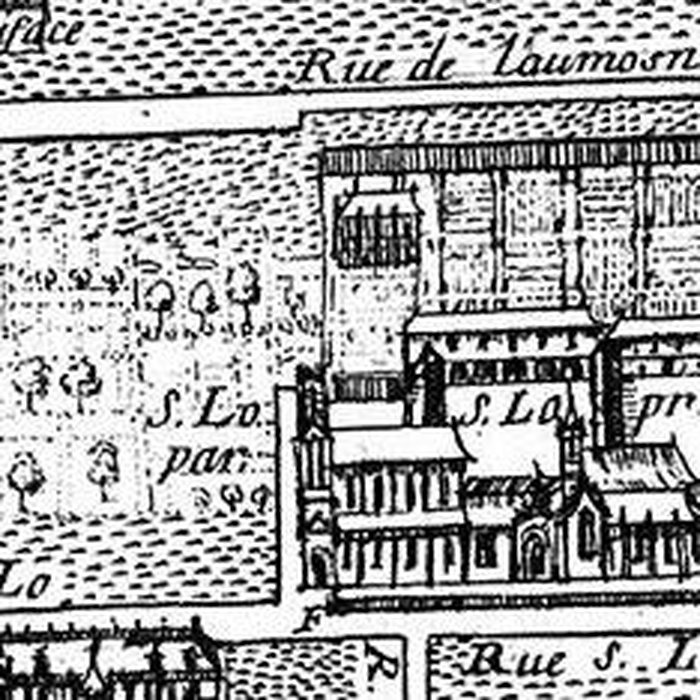 Rue de l'aumosn
S. Lo
par.
S. Lo
pr
Lo
F
R
Rue S. L